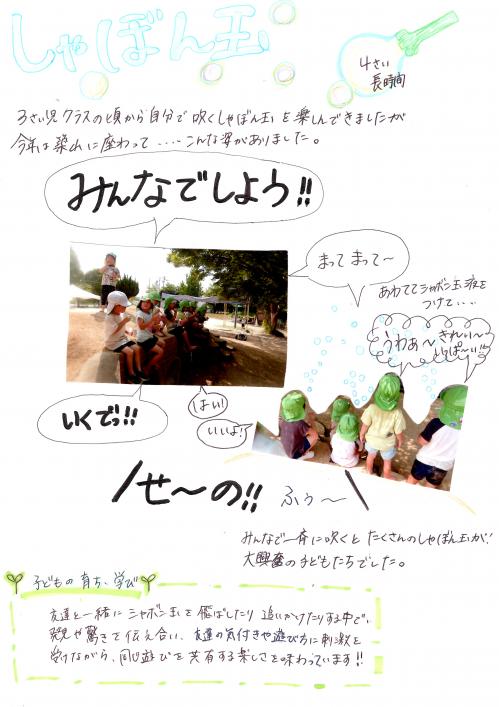 しゃぼん玉
4さい
長時間
3さい児クラスの頃から自分で吹くしゃぼん玉を楽しんできましたが
今年は築山に座って・・・・こんな姿がありました。
みんなでしよう!!
まってまって〜
あわててシャボン玉液を
つけて・・・・
うわぁ〜きれい〜
いくでっ!!
はい!
いいよ!
せ〜の!!
ふぅ〜
みんなで一斉に吹くとたくさんのしゃぼん玉が!
大興奮の子どもたちでした。
子どもの育ち、学び
友達と一緒にシャボン玉を飛ばしたり追いかけたりする中で、
発見や驚きを伝え合い、友達の気付きや遊び方に刺激を
受けながら、同じ遊びを共有する楽しさを味わっています!!